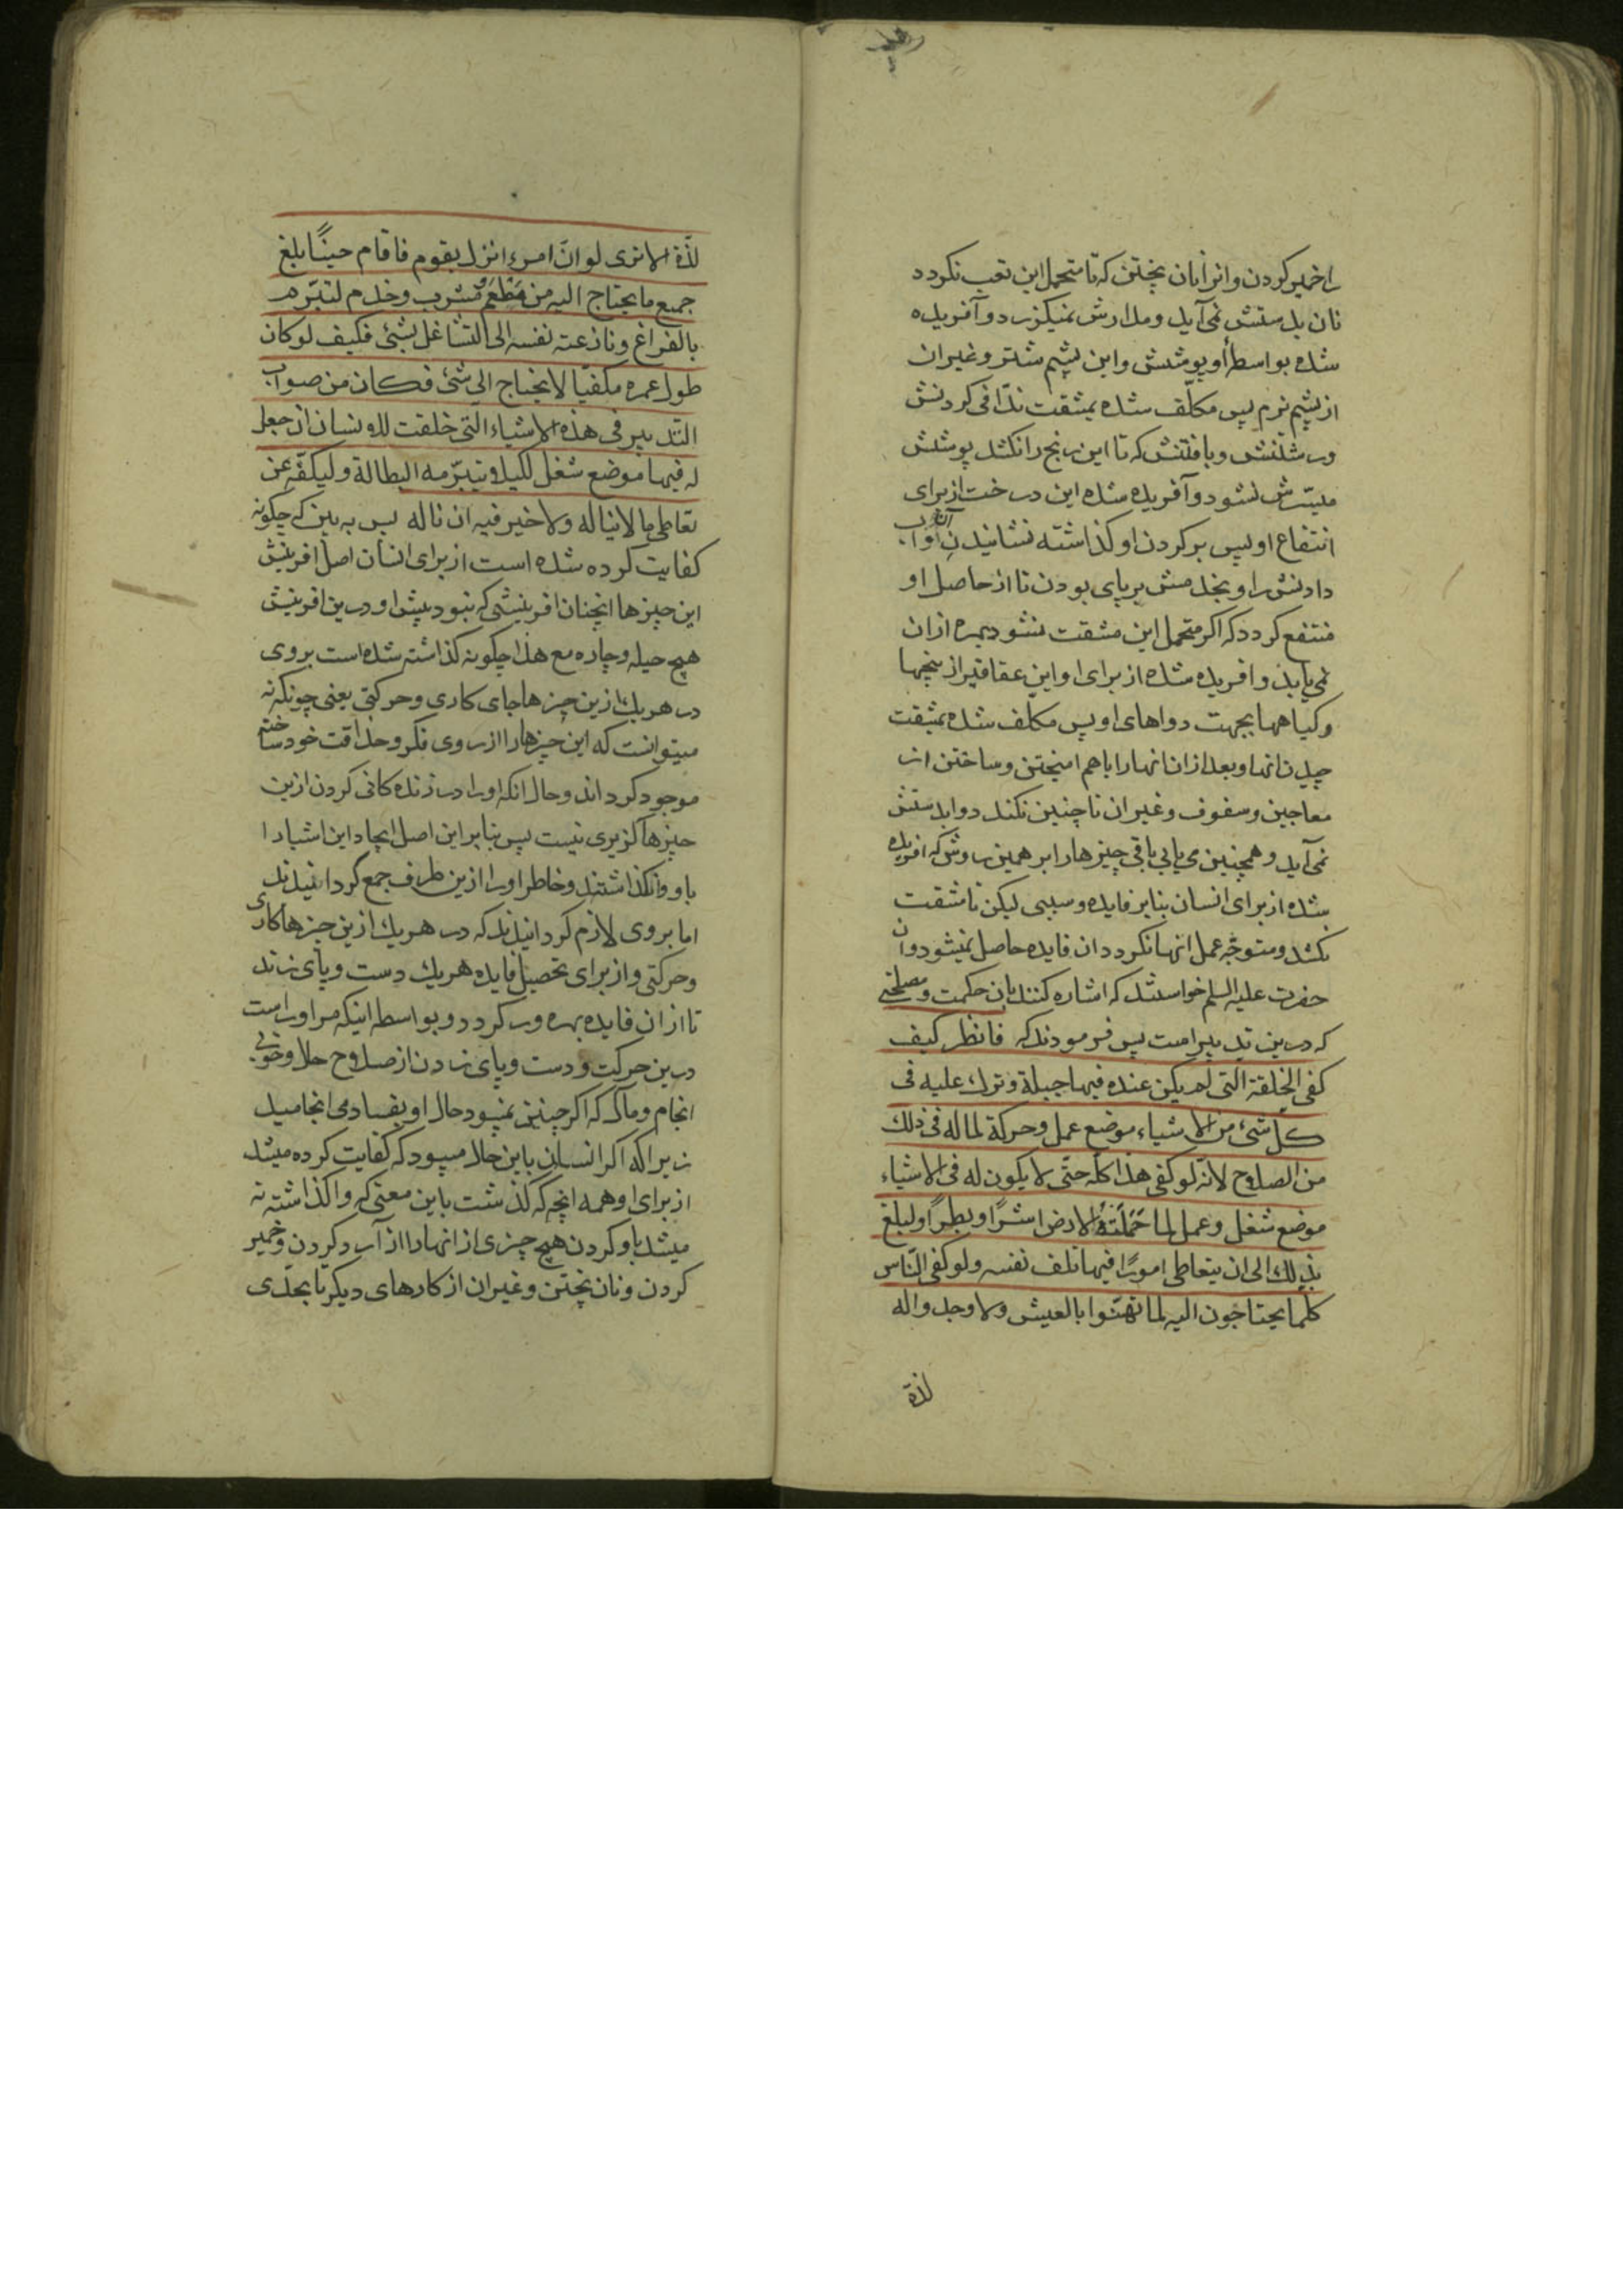 را خمیر کردن و انرا نان پختن که تا متحمل این تعب نکردد
نان بدستش نمی‌آید و مدارش نمیکزرد و آفریده
شده بواسطهٔ او پوشش و این پشم شتر و غیر ان
از پشم نرم پس مکلّف شده بمشقت ندّافی کردنش
ورشتنش و بافتنش که تا این رنج را نکشد پوشش
میسّرش نشود و آفریده شده این درخت از برای
انتفاع او پس بر کردن او کذاشته نشانیدن او و آب
دادنش را و بخدمتش بر پای بودن تا از حاصل او
منتفع کردد که اکر متحمل این مشقت نشود بهره ازان
نمی‌یابد و افریده شده از برای او این عقاقیر از بیخها
و کیاهها بجهت دواهای او پس مکلف شده بمشقت
چیدن انها و بعد ازان انها را با هم امیختن و ساختن از
معاجین و سفوف و غیر ان تا چنین نکند دوا بدستش
نمی‌آید و همچنین می یابی باقی چیزها را بر همین روش که افریده
شده از برای انسان بنابر فایده و سببی لیکن تا مشقت
نکشد و متوجّه عمل انها نکردد ان فایده حاصل نمیشود و ان
حضرت علیه السلم خواستند که اشاره کنند بان حکمت و مصلحتی
که درین تدبیر است پس فرمودند که فانظر کیف
کفی الخلقة التی لم یکن عنده فیها حیلة و ترک علیه فی
کل شیء من الاشیاء موضع عمل و حرکة لما له فی ذلک
من الصلاح لانّه لو کفی هذا کلّه حتّی لا یکون له فی الاشیاء
موضع شغل و عمل لما حَمَلَتهُ الارض اشرًا و بطرًا و لبلغ
بذلک الی ان یتعاطی امورًا فیها تلف نفسه و لو کفی النّاس
کلّما یحتاجون الیه لما تهنّئوا بالعیش و لا وجدوا له
لذة
لذّة الا تری لو انّ امرء انزل بقوم فاقام حینًا بلغ
جمیع ما یحتاج الیه من مطعم و مشرب و خدم لتبرّم
بالفراغ و نازعته نفسه الی التشاغل بشیء فکیف لو کان
طول عمره مکفیّا لا یحتاج الی شیء فکان من صواب
التدبیر فی هذه الاشیاء التی خلقت للانسان ان جعل
له فیها موضع شغل لکیلا تبرّمه البطالة و لیکفّه عن
تعاطی ما لا یناله و لا خیر فیه ان ناله پس به بین که چکونه
کفایت کرده شده است از برای انسان اصل افرینش
این چیزها انچنان افرینشی که نبود پیش او درین افرینش
هیچ حیله و چاره مع هذا چکونه کذاشته شده است بروی
در هر یک ازین چیزها جای کاری و حرکتی یعنی چونکه نه
میتوانست که این چیزها را از روی فکر و حذاقت خود ساخته
موجود کرداند و حال انکه او را در زنده کانی کردن ازین
چیزها کزیری نیست پس بنابر این اصل ایجاد این اشیا را
باو وانکذاشتند و خاطر او را ازین طرف جمع کردانیدند
اما بروی لازم کردانیدند که در هر یک ازین چیزها کاری
و حرکتی و از برای تحصیل فایده هر یک دست و پای زند
تا از ان فایده بهره ور کردد و بواسطه اینکه مر او راست
درین حرکت و دست و پای زدن از صلاح حال و خوبی
انجام و مآل که اکر چنین نمیبود حال او بفساد می انجامید
زیرا که اکر انسان باین حال میبود که کفایت کرده میشد
از برای او همه انچه که کذشت باین معنی که واکذاشته نه
میشد باو کردن هیچ چیزی از انها را از آرد کردن و خمیر
کردن و نان پختن و غیر ان از کارهای دیکر تا بحدّی